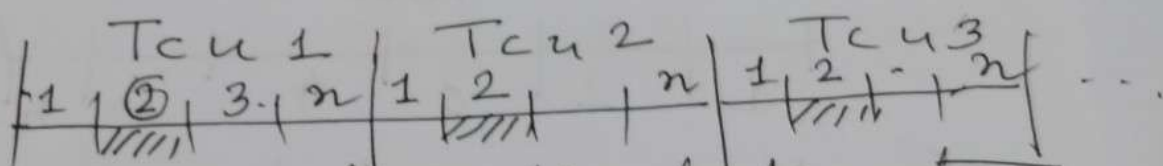 Tcu 1 Tcu 2 Tcu 3
1 ② 3. n 1 2 n 1 2 - n ...